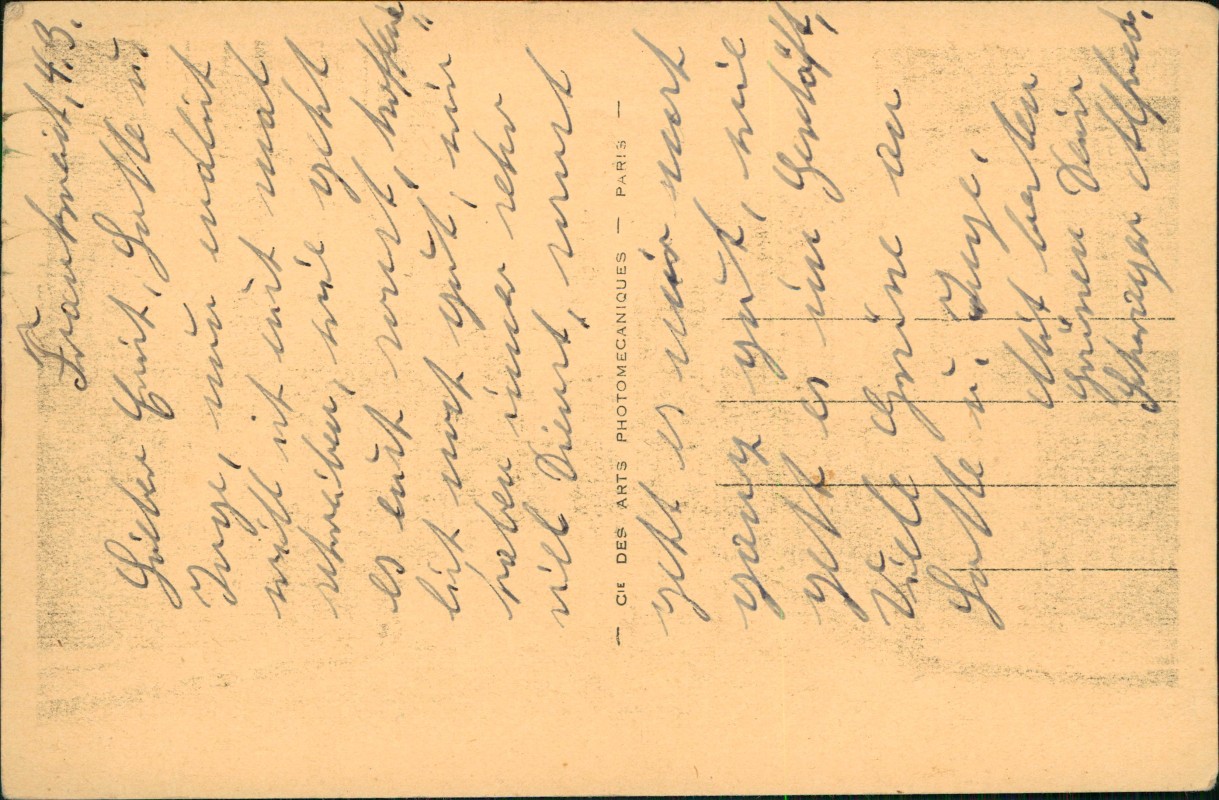 Frankreich, 4.3.
Lieber Ernst, Lotte u.
Inge, nun endlich
will ich euch mal
schreiben, wie geht
es euch sonst, hoffent"
lich noch gut, wir
haben immer sehr
viel Dienst, sonst
— CIE DES ARTS PHOTOMECANIQUES — PARIS —
geht es mir noch
ganz gut, wie
geht es im Geschäft,
Viele Grüße an
Lotte u. Inge,
Mit besten
Grüßen Dein
Schwager Alfred,